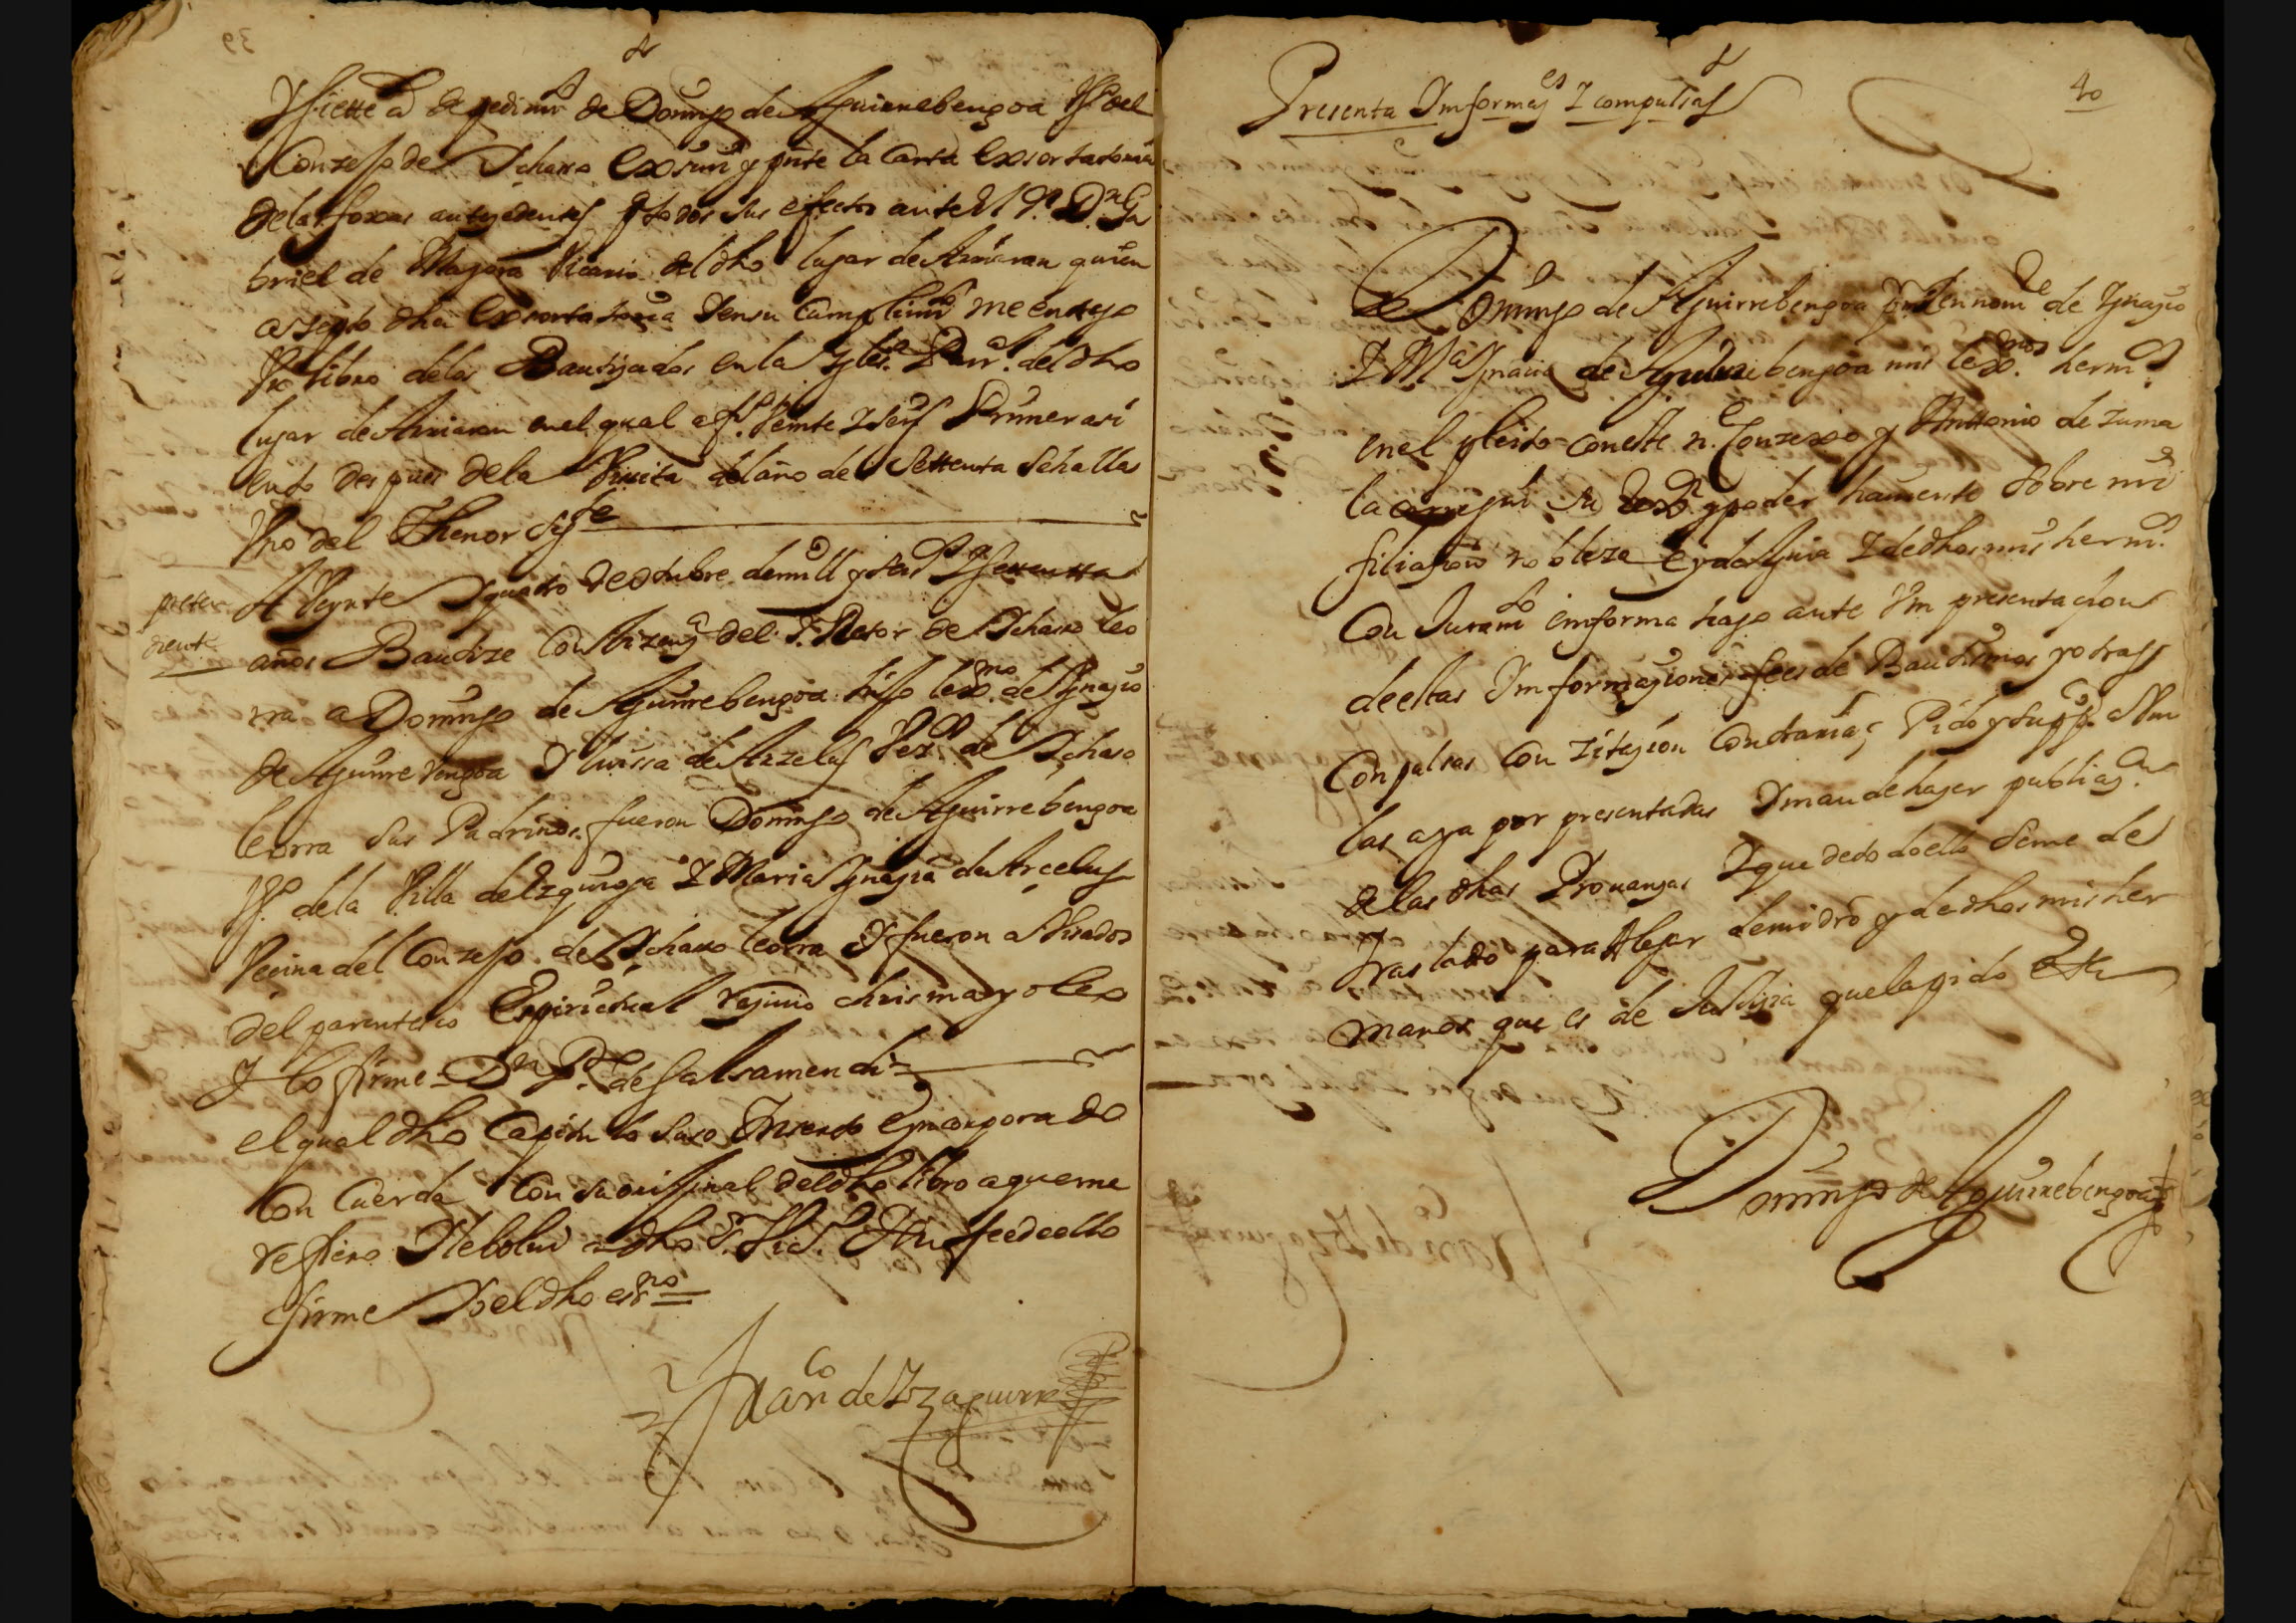 Y siette a de pedimto de Domingo de Aguirrebengoa Vº del
Conzejo de Ichaso exsivi y pnte la Carta exsortatoria
de las foxas antezedentes pª todos sus efectos ante el Sr Dn Ga
briel de Mayora Vicario del dho lugar de Arriaran quien
azepto dha exsortatoria Y en su Cumplimto me entrego
Vn libro de los Bautizados en la Yglesª Parrl del dho
lugar de Arriaran en el qual a fs Veinte Y seis Primer asi
ento despues de la Visita del año de Settenta se halla
Vno del Thenor sigte
A Veynte Y quatro de octubre de mill y seisos Y settentta
años Bautize Con lizenª del Sr Retor de Ichaso leo
rra a Domingo de Aguirrebengoa hijo lexmo de Ygnazio
de Aguirrevengoa Y luissa de Arzelus Vezos de Ichaso
leorra Sus Padrinos fueron Domingo de Aguirrebengoa
Vº de la Villa de Ezquioga Y Maria Ygnazia de Arcelus
Vecina del Conzejo de Ichaso leorra Y fueron abisados
del parentesco Espiritual rezivio chrisma y oleo
Y lo firme = Dn Po de Galsamendi =
el qual dho Capitulo suso Inserto E yncorporado
Con Cuerda Con su orijinal del dho libro a que me
refiero Y le bolui a dho Sr Vicº Y en fee de ello
firme Yo el dho essno =
Franco de Yzaguirre
39
40
Presenta Imformaes Y compulsas
Domingo de Aguirrebengoa por mi Y en nome de Ygnazio
Y Mª Ygnacia de Aguirrebengoa mis lexmos hermos
en el pleito con este n. Conzexo y Anttonio de zuma
la carregui su Sindº y poder hauiente sobre mi
filiazion nobleza e ydalguia Y de dhos mis hermos
Con Juramto en forma hago ante Vm presentazion
de estas Imformaziones fees de Bautismos y otras
Conpulsas Con zitazion Contraria; Pido y suppco a Vm
las aya por presentadas Y mande hazer publicaon
de las dhas Prouanzas Y que de todo ello se me de
traslado para Alegar de mi dro y de dhos mis her
manos que es de Justizia que la pido Ettª
Domingo de Aguirrebengoa